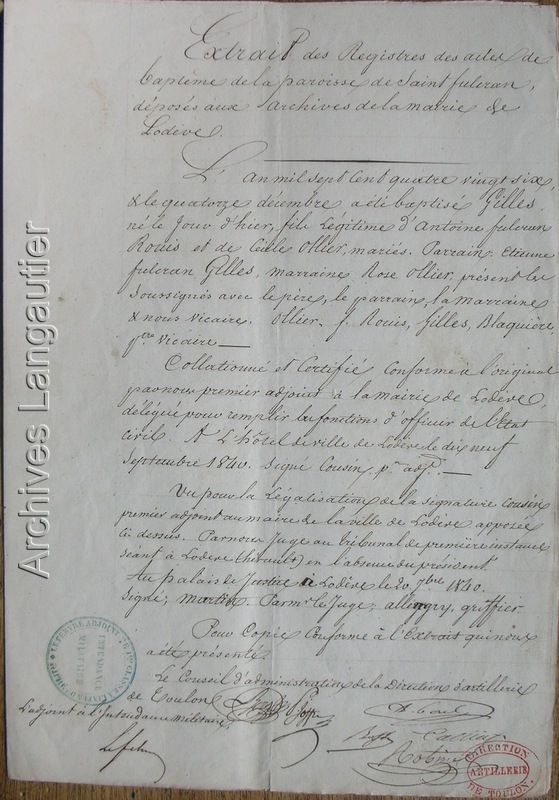 Extrait des Registres des actes de
baptême de la paroisse de Saint fulcran,
déposés aux archives de la mairie de
Lodève.
L'an mil sept cent quatre vingt six
& le quatorze décembre a été baptisé Gilles
né le jour d'hier, fils légitime d'Antoine fulcran
Rouis et de Cécile Ollier, mariés. Parrain, Etienne
fulcran Gilles, marraine Rose Ollier, présent les
soussignés avec le père, le parrain, la marraine
& nous vicaire. Ollier. f. Rouis, Gilles, Blaquière,
vicaire —
Collationné et certifié conforme à l'original
par nous premier adjoint à la mairie de Lodève,
délégué pour remplir les fonctions d'officier de l'Etat
civil. A l'hôtel de ville de Lodève le dix neuf
Septembre 1840. Signé Cousin, pr. adjt. —
Vu pour la légalisation de la signature Cousin
premier adjoint au maire de la ville de Lodève apposée
ci dessus. Par nous Juge au tribunal de première instance
séant à Lodève (hérault) en l'absence du président
Au palais de Justice à Lodève le 20 7bre 1840.
Signé; martin. Par mr. le Juge; greffier
Pour Copie conforme à l'Extrait qui nous
a été présenté.
Le Conseil d'administration de la Direction d'artillerie
de Toulon
L'adjoint à l'Intendance Militaire,
Robin
DIRECTION
ARTILLERIE
DE TOULON
INTENDANCE
MILITAIRE
Archives Langautier